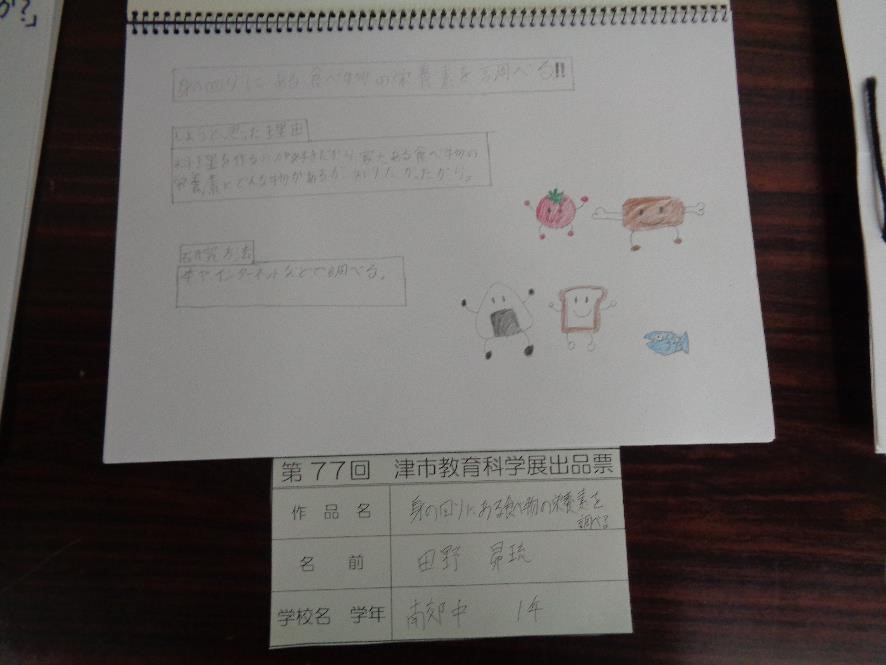 か?」
身の回りにある食べ物の栄養素を調べる!!
しようと思った理由
料理を作るのが好きだから、家にある食べ物の
栄養素にどんな物があるか知りたかったから。
研究方法
本やインターネットなどで調べる。
第77回 津市教育科学展出品票
作品名 身の回りにある食べ物の栄養素を
調べる
名前 田野 昴琉
学校名 学年 南郊中 1年